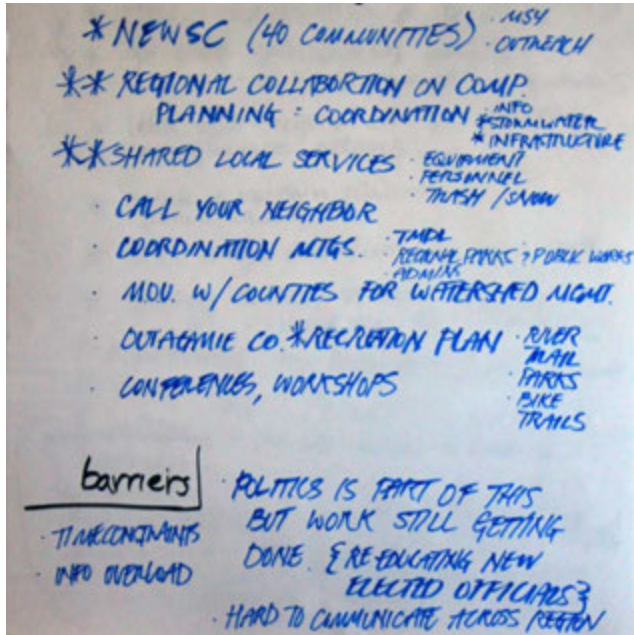 * NEWSC (40 COMMUNITIES) · MS4
· OUTREACH
** REGIONAL COLLABORTION ON COMP.
PLANNING : COORDINATION · INFO
* STORMWATER
* INFRASTRUCTURE
** SHARED LOCAL SERVICES · EQUIPMENT
· PERSONNEL
· TRASH / SNOW
· CALL YOUR NEIGHBOR
· COORDINATION MTGS. · TMDL
· REGIONAL PARKS ? PUBLIC WORKS
· ADMINS
· M.O.U. W/ COUNTIES FOR WATERSHED MGMT.
· OUTAGAMIE CO. * RECREATION PLAN · RIVER
TRAIL
· CONFERENCES, WORKSHOPS · PARKS
· BIKE
TRAILS
barriers
· TIME CONSTRAINTS
· INFO OVERLOAD
· POLITICS IS PART OF THIS
BUT WORK STILL GETTING
DONE. {RE-EDUCATING NEW
ELECTED OFFICIALS}
· HARD TO COMMUNICATE ACROSS REGION